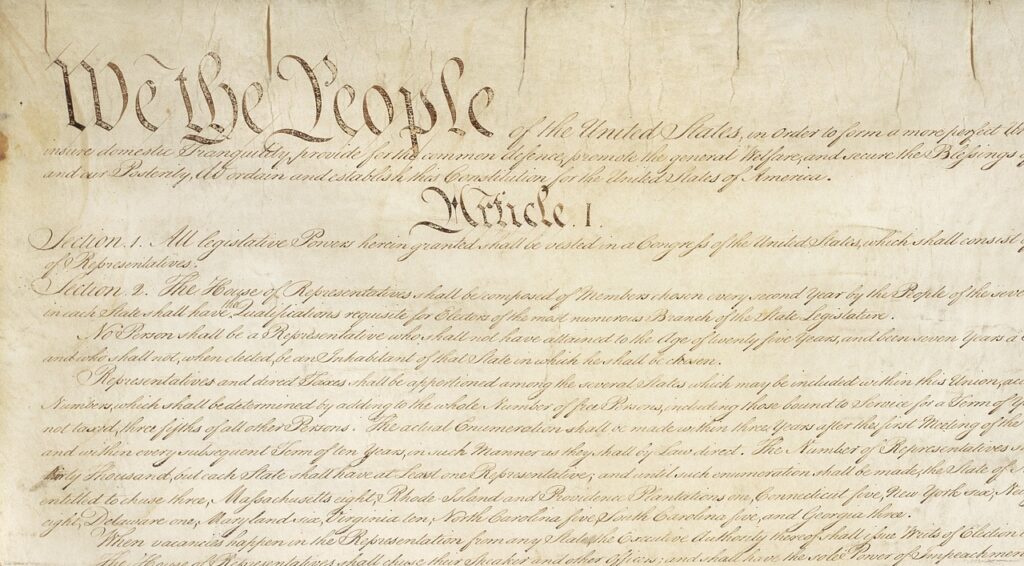 We the People of the United States, in Order to form a more perfect Un
insure domestic Tranquility, provide for the common defence, promote the general Welfare, and secure the Blessings of
and our Posterity, do ordain and establish this Constitution for the United States of America.
Article. I.
Section. 1. All legislative Powers herein granted shall be vested in a Congress of the United States, which shall consist of
of Representatives.
Section. 2. The House of Representatives shall be composed of Members chosen every second Year by the People of the seve
in each State shall have the Qualifications requisite for Electors of the most numerous Branch of the State Legislature.
No Person shall be a Representative who shall not have attained to the Age of twenty five Years, and been seven Years a C
and who shall not, when elected, be an Inhabitant of that State in which he shall be chosen.
Representatives and direct Taxes shall be apportioned among the several States which may be included within this Union, acc
Numbers, which shall be determined by adding to the whole Number of free Persons, including those bound to Service for a Term of Y
not taxed, three fifths of all other Persons. The actual Enumeration shall be made within three Years after the first Meeting of the
and within every subsequent Term of ten Years, in such Manner as they shall by Law direct. The Number of Representatives s
thirty Thousand, but each State shall have at Least one Representative; and until such enumeration shall be made, the State of N
entitled to chuse three, Massachusetts eight, Rhode Island and Providence Plantations one, Connecticut five, New York six, Ne
eight, Delaware one, Maryland six, Virginia ten, North Carolina five, South Carolina five, and Georgia three.
When vacancies happen in the Representation from any State, the Executive Authority thereof shall issue Writs of Election
The House of Representatives shall chuse their Speaker and other Officers; and shall have the sole Power of Impeachment